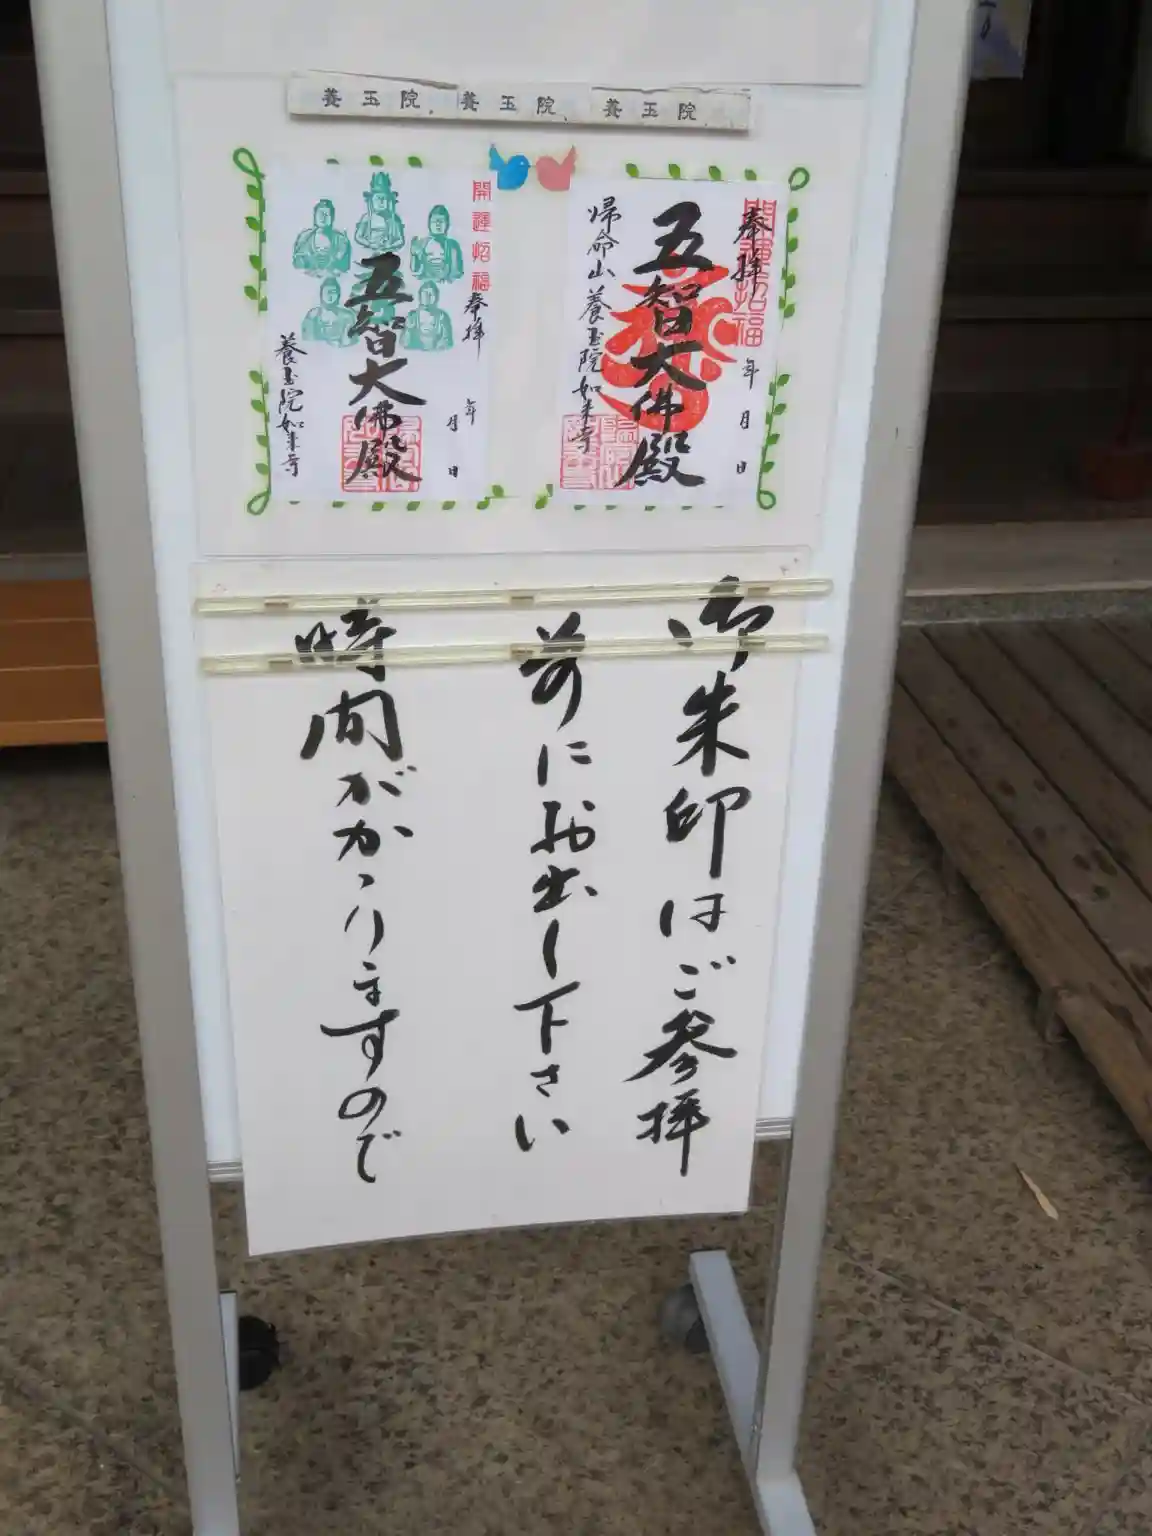 養玉院 養玉院 養玉院
開運招福
奉拝
年
月
日
五智大佛殿
養玉院如来寺
開運招福
奉拝
年
月
日
五智大佛殿
帰命山養玉院如来寺
御朱印はご参拝
前にお出し下さい
時間がかゝりますので